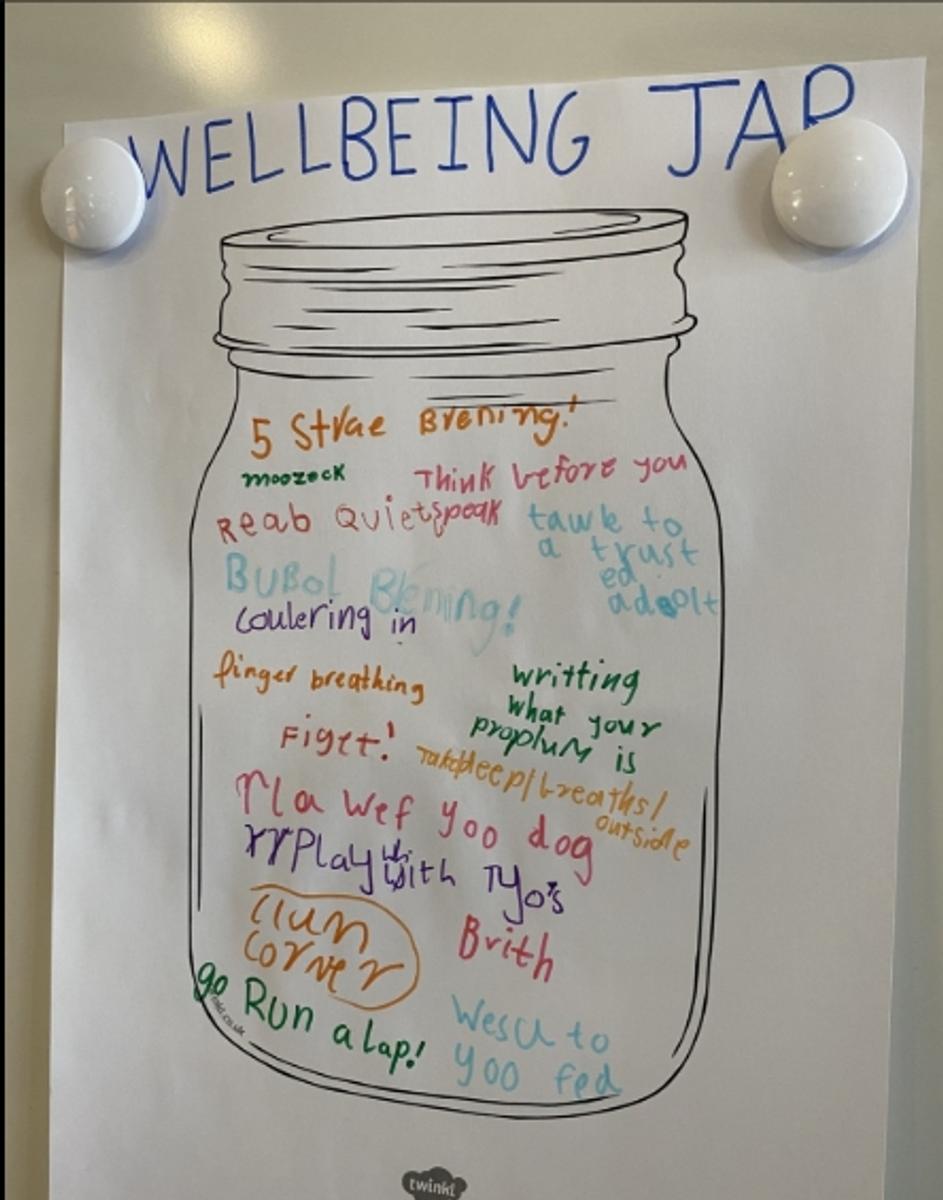 WELLBEING JAR
5 Strae Brening!
moozeck
Think before you
speak
Reab Quiet
tawk to
a trust
ed
adolt
BUBol Blening!
coulering in
finger breathing
writting
what your
proplum is
Figet!
Take/deep/breaths/
outside
Pla wef yoo dog
Play with Tyo's
corner
Brith
go Run a lap!
to
yoo fed
twinkl